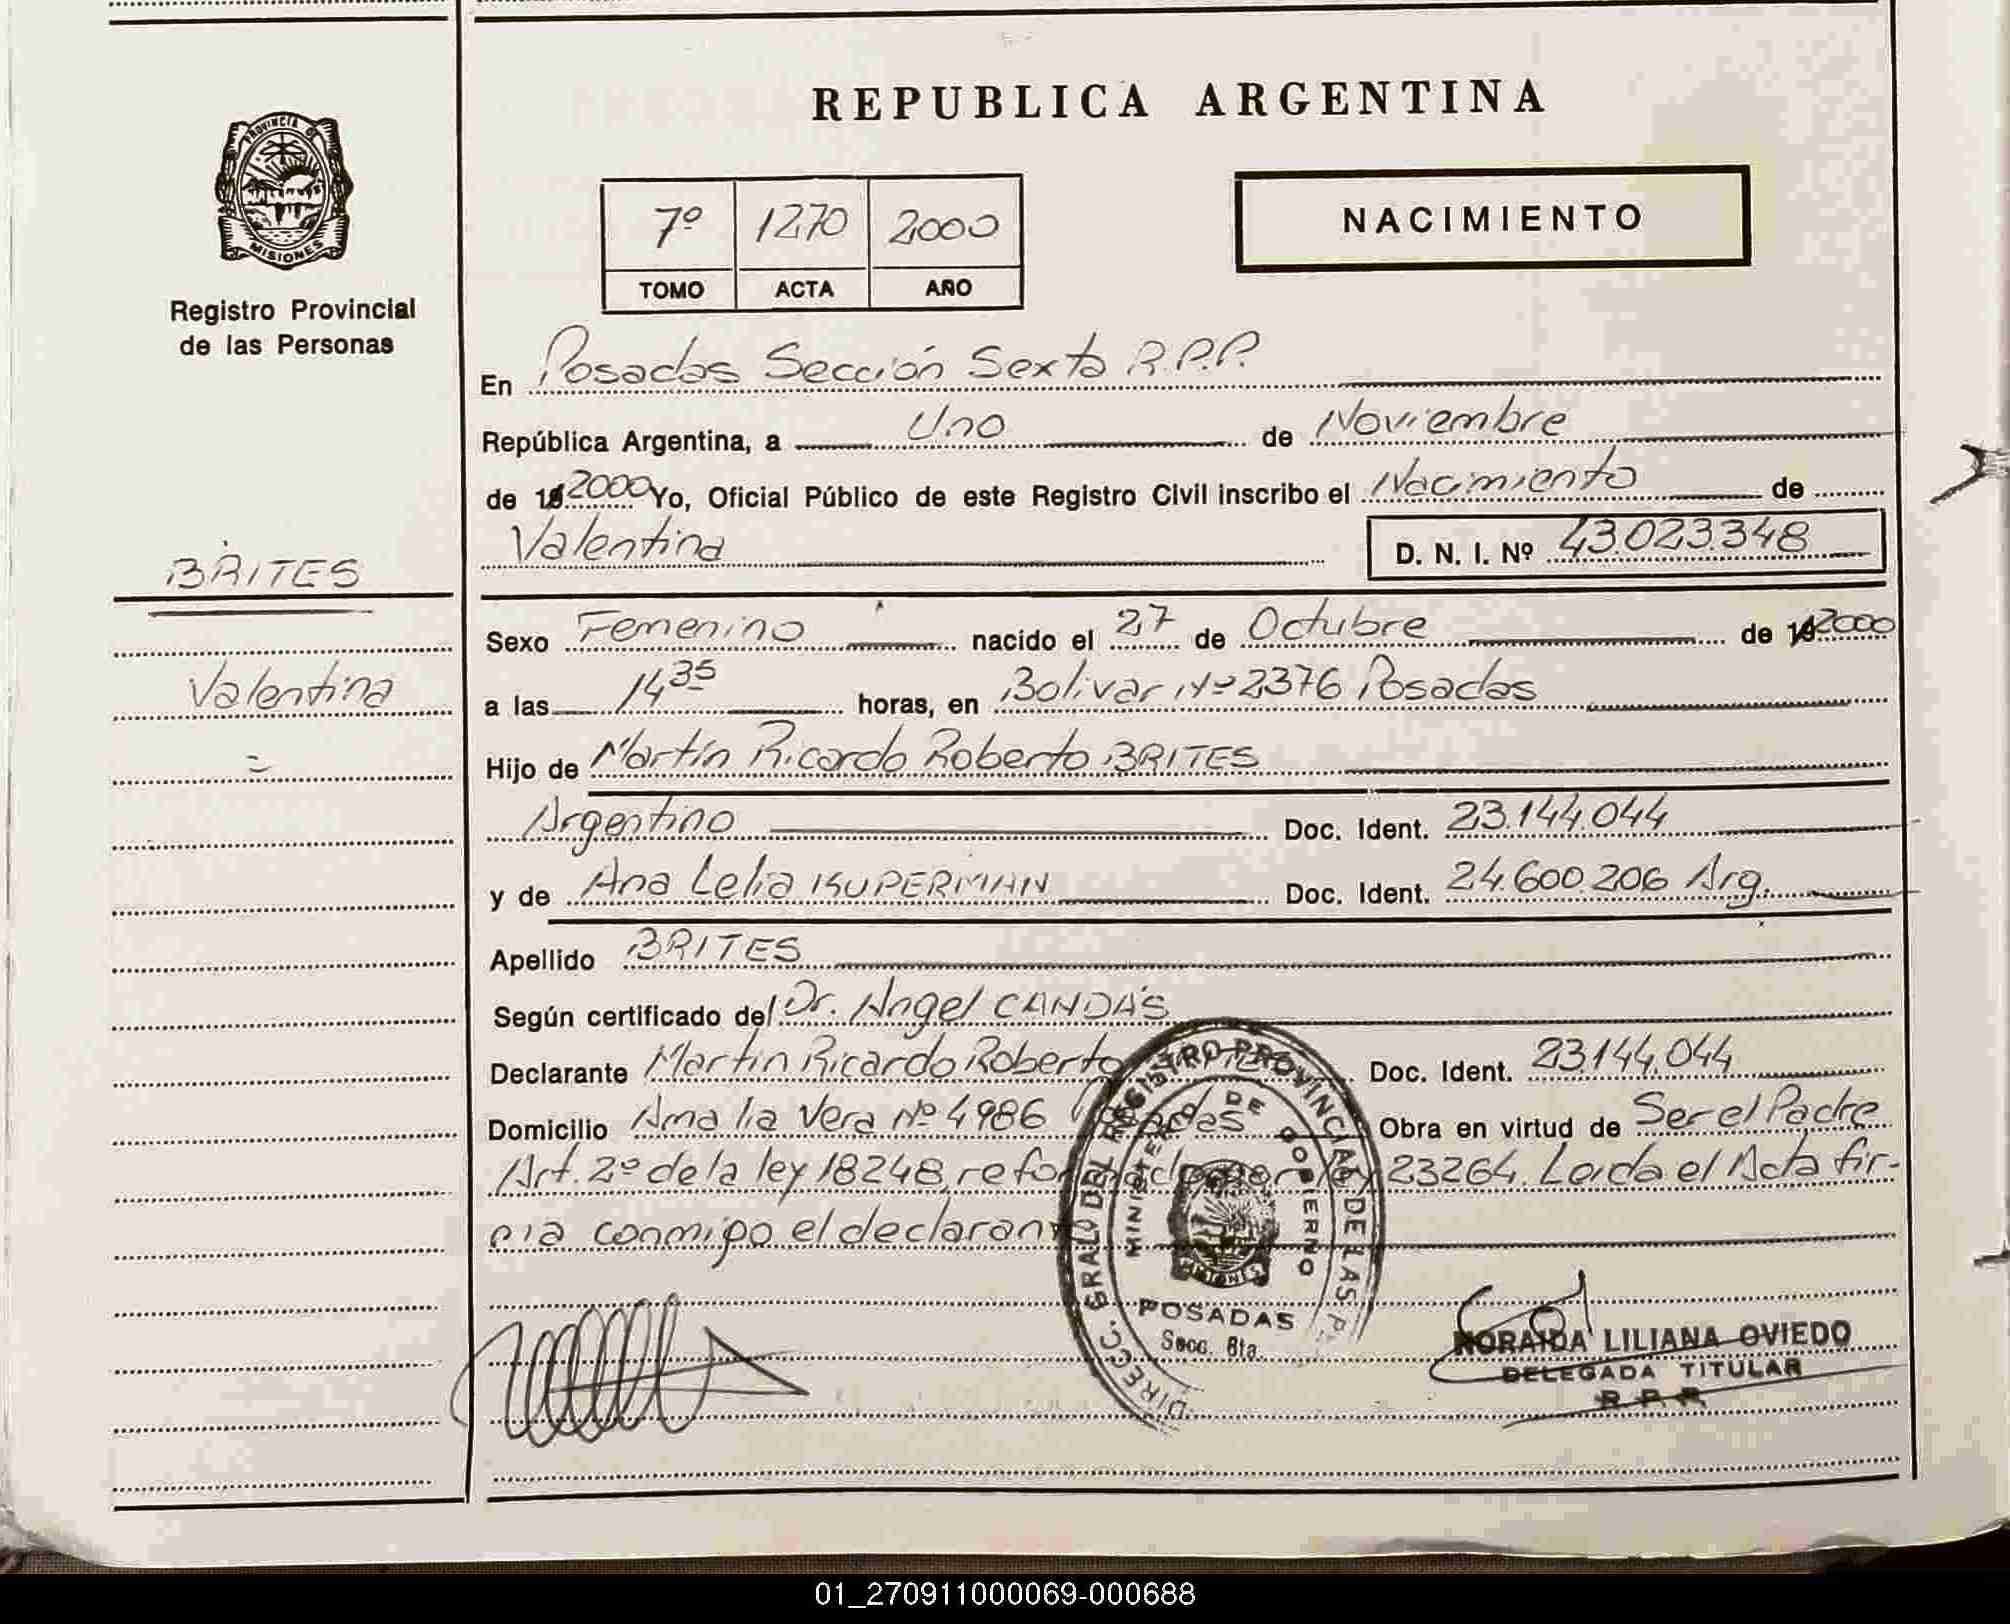 REPUBLICA ARGENTINA
PROVINCIA DE
MISIONES
Registro Provincial
de las Personas
7º 1270 2000
TOMO ACTA AÑO
NACIMIENTO
En Posadas Sección Sexta R.P.P.
República Argentina, a Uno de Noviembre
de 19 2000 Yo, Oficial Público de este Registro Civil inscribo el Nacimiento de
Valentina D. N. I. Nº 43.023.348
BRITES
Valentina
Sexo Femenino nacido el 27 de Octubre de 19 2000
a las 14 35 horas, en Bolivar Nº 2376 Posadas
Hijo de Martín Ricardo Roberto BRITES
Argentino Doc. Ident. 23.144.044
y de Ana Lelia KUPERMAN Doc. Ident. 24.600.206 Arg.
Apellido BRITES
Según certificado del Dr. Angel CANDÁS
Declarante Martin Ricardo Roberto Doc. Ident. 23.144.044
Domicilio Amalia Vera Nº 4986 Posadas Obra en virtud de Ser el Padre
Art. 2º de la ley 18248, reformado por ley 23264. Leída el Acta fir-
ma conmigo el declarante
DIRECC. GRAL. DEL REGISTRO PROVINCIAL DE LAS P.
MINISTERIO DE GOBIERNO
MISIONES
POSADAS
Secc. 6ta.
NORAIDA LILIANA OVIEDO
DELEGADA TITULAR
R. P. P.
01_270911000069-000688